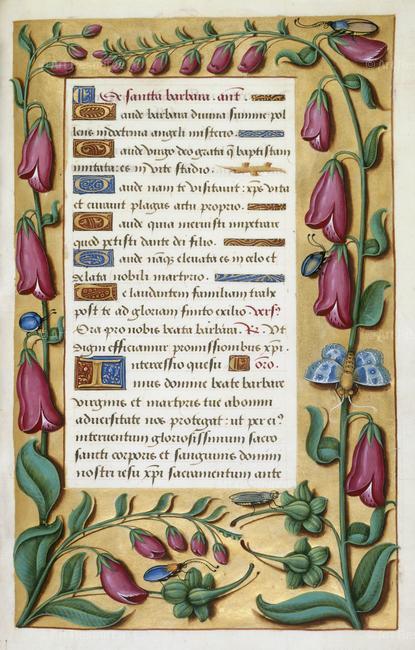 De sancta barbara. ant.
Gaude barbara divina summe pol
lens in doctrina angeli misterio.
Gaude virgo deo grata que baptistam
imitata es in vite stadio.
Gaude nam te visitavit xps vita
et curavit plagas actu proprio.
Gaude quia meruisti impetrare
quod petisti dante dei filio.
Gaude namque elevata es in celo et
zelata nobili martyrio.
Te laudantem familiam trahe
post te ad gloriam finito exilio vers9
Ora pro nobis beata barbara. R. Ut
digni efficiamur promissionibus xpi.
Intercessio quesu oro.
mus domine beate barbare
virginis et martyris tue ab omni
adversitate nos protegat: ut per ei9
interventum gloriosissimum sacro
sancti corporis et sanguinis domini
nostri iesu xpi sacramentum ante